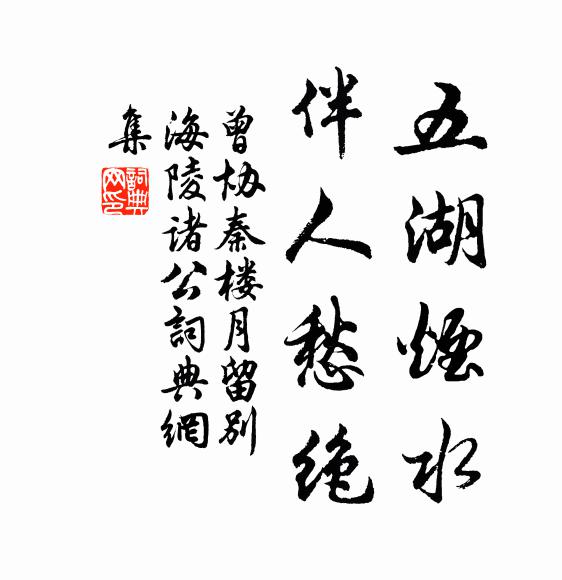 五湖煙水
伴人愁绝
曾协秦楼月留别
海陵诸公詞典網
集
詞典网印